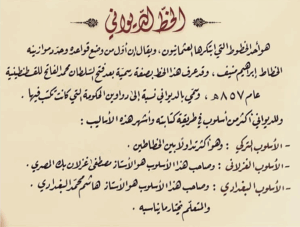 الخط الديواني
هو أحد الخطوط التي ابتكرها العثمانيون، ويقال إن أول من وضع قواعده وحدد موازينه
الخطاط إبراهيم منيف، وقد عرف هذا الخط بصفة رسمية بعد فتح السلطان محمد الفاتح للقسطنطينية
عام ٨٥٧هـ، وسمي بالديواني نسبة إلى دواوين الحكومة التي كانت تكتب فيها.
وللديواني أكثر من أسلوب في طريقة كتابته وأشهر هذه الأساليب:
-الأسلوب التركي: وهو أكثر تداولا بين الخطاطين.
-الأسلوب الغزلاني: وصاحب هذا الأسلوب هو الأستاذ مصطفى غزلان بك المصري.
-الأسلوب البغدادي: وصاحب هذا الأسلوب هو الأستاذ هاشم محمد البغدادي.
والمتعلم يختار ما يناسبه.